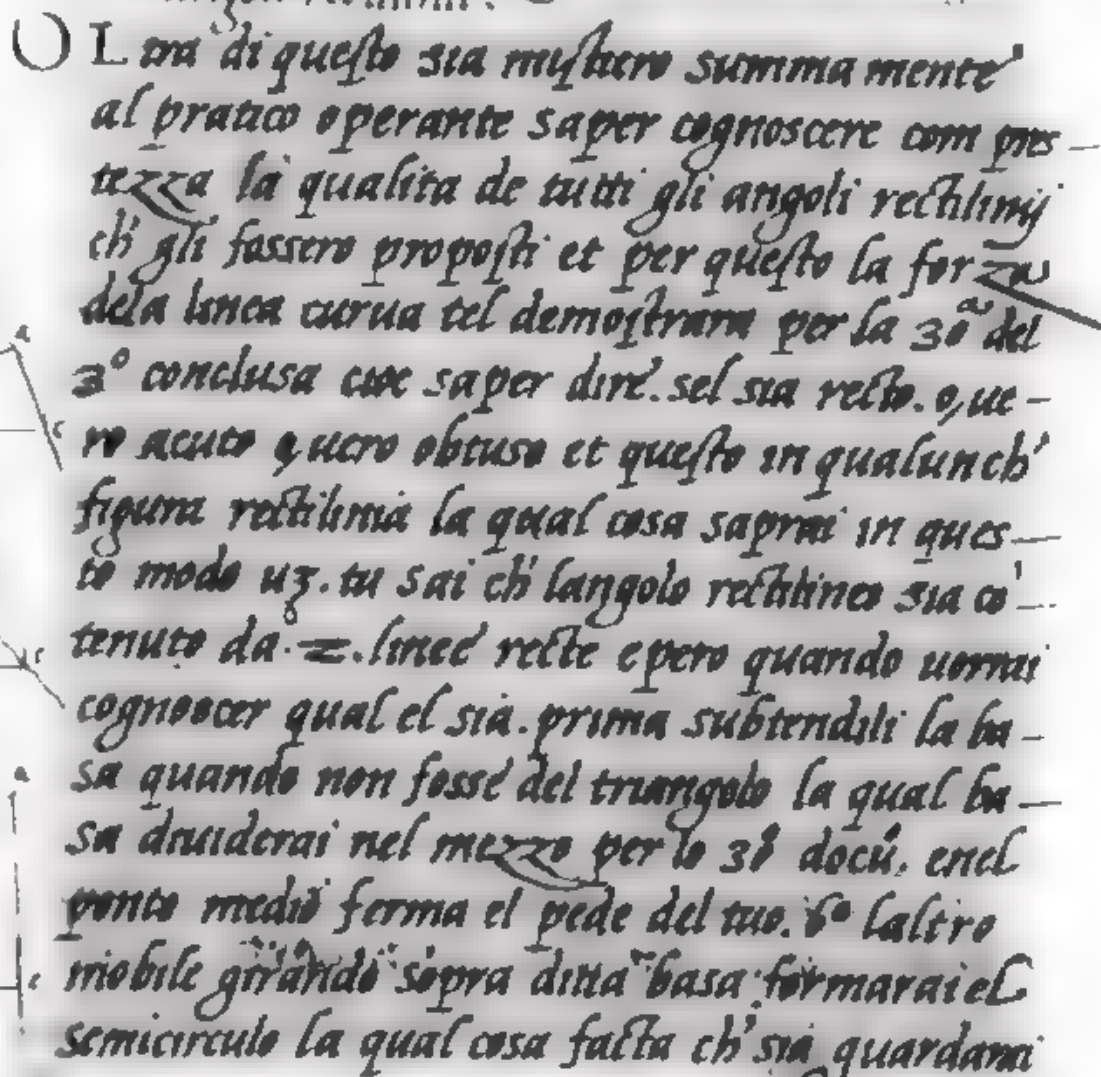 OLtra di questo sia mistiero summa mente
al pratico operante saper cognoscere com pres-
tezza la qualita de tutti gli angoli rectilinij
ch' gli fossero proposti et per questo la forza
dela linea curua tel demostrara per la 30ª del
3º conclusa cioe saper dire. sel sia recto. o, ue-
ro acuto o, uero obtuso et questo in qualunch'
figura rectilinia la qual cosa saprai in ques-
to modo uz. tu sai ch' langolo rectilineo sia co-
tenuto da .2. linee recte e pero quando uorrai
cognoscer qual el sia. prima subtendili la ba-
sa quando non fosse del triangolo la qual ba-
sa diuiderai nel mezzo per lo 3º docu. enel
ponto medio ferma el pede del tuo. 6º laltro
mobile girando sopra ditta basa formarai el
semicirculo la qual cosa facta ch' sia guardarai